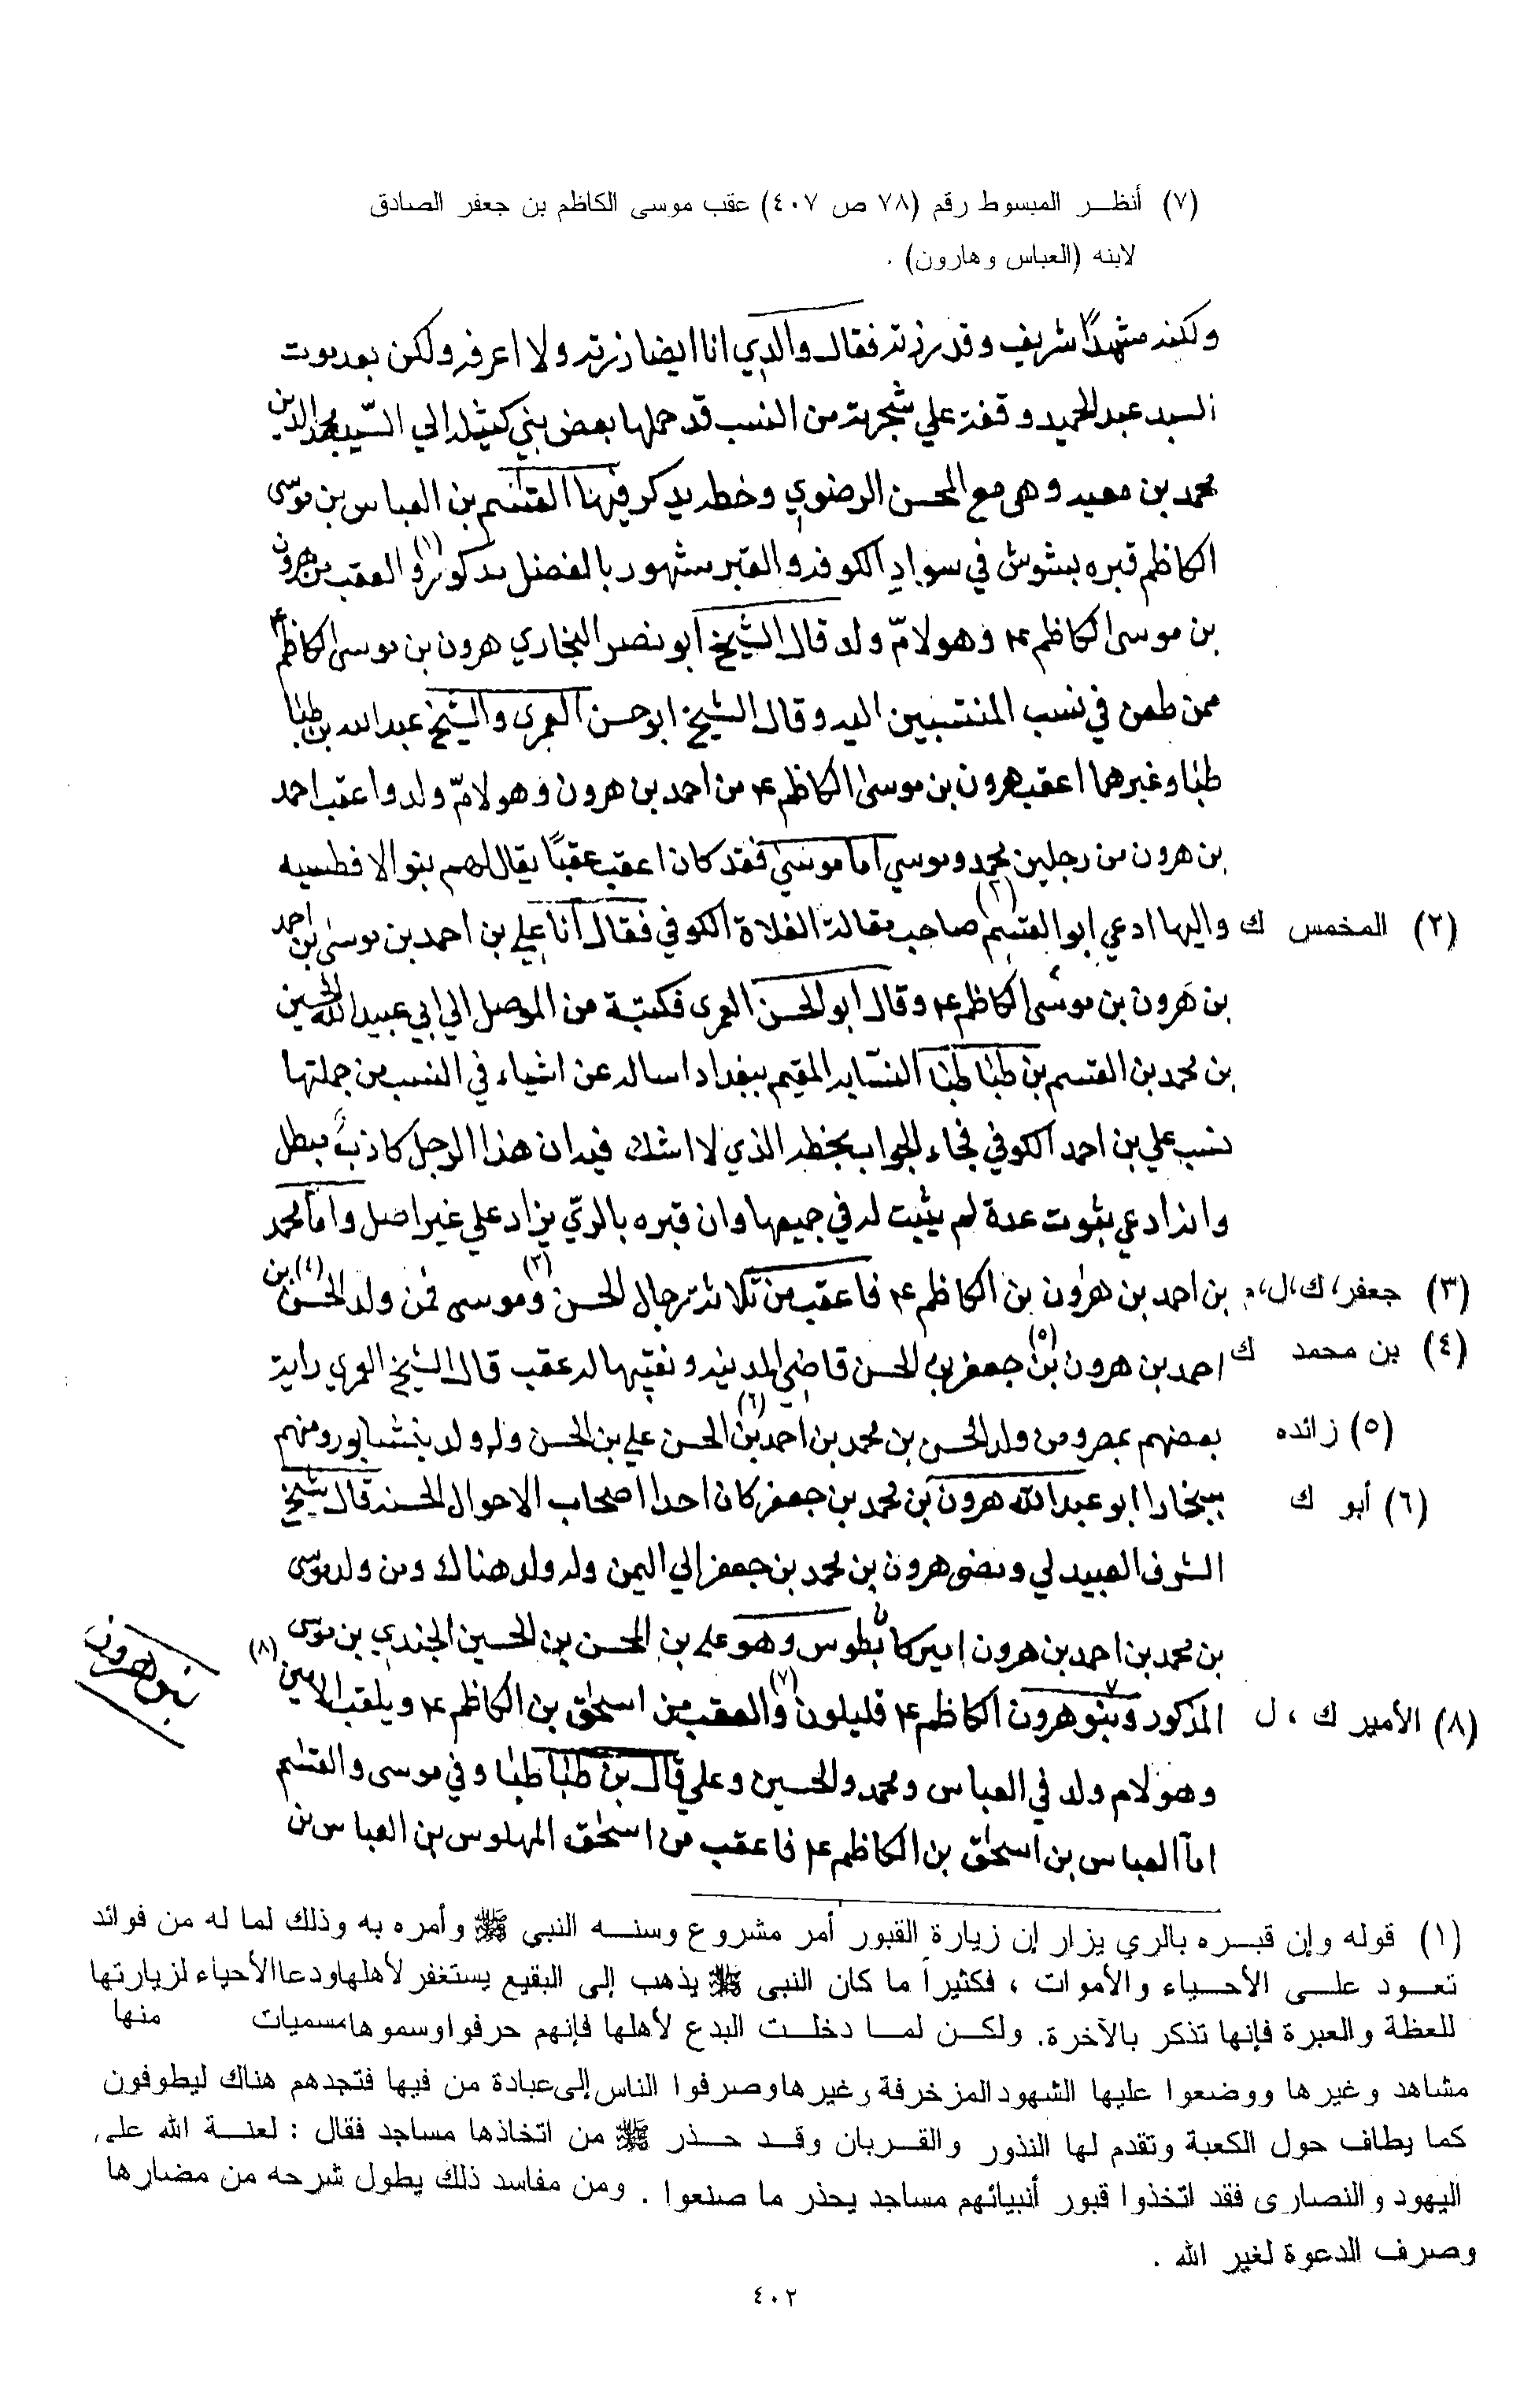 (٧) أنظر المبسوط رقم (٧٨ ص ٤٠٧) عقب موسى الكاظم بن جعفر الصادق
لابنه (العباس وهارون) .
ولكنه مشهدًا شريف وقد زرته فقال والدي انا ايضا زرته ولا اعرفه ولكن بعد موت
السيد عبد الحميد وقفت علي شجرة من النسب قد حملها بعض بني كتيله الي السّيد مجد الدين
محمد بن معيد وهي مع المحسن الرضوي وخطه يذكر فيها القسم بن العباس بن موسى
الكاظم قبره بشوش في سواد الكوفه والقبر مشهور بالفضل مذكور (١) والعقب من هرون
بن موسى الكاظم ٤م وهو لامّ ولد قال الشيخ ابو نصر البخاري هرون بن موسى الكاظم
ممن طعن في نسب المنتسبين اليه وقال الشيخ ابو حسن العمرى والشيخ عبد الله بن طبا
طبا وغيرهما اعقب هرون بن موسى الكاظم ٤م من احمد بن هرون وهو لامّ ولد واعقب احمد
بن هرون من رجلين محمد وموسي اما موسى فقد كان اعقب عقبًا يقال لهم بنو الافطسيه
(٢) المخمس ك واليها ادعي ابو القسم (٢) صاحب مقالة الغلاة الكوفي فقال انا علي بن احمد بن موسى بن احمد
بن هرون بن موسى الكاظم ٤م وقال ابو الحسن العمرى فكتبة من الموصل الي ابي عبيد الله الحسين
بن محمد بن القسم بن طبا طبا النسّابه المقيم ببغداد اساله عن اشياء في النسب من جملتها
نسب علي بن احمد الكوفي فجاء الجواب بخطه الذي لا اشك فيه ان هذا الرجل كاذب مبطل
وانه ادعي بثبوت عدة لم يثبت له في جميعها وان قبره بالريّ يزاد علي غير اصل وامّا محمد
(٣) جعفر، ك، ل، م بن احمد بن هرون بن الكاظم ٤م فاعقب من ثلاثة رجال الحسن (٣) وموسى فمن ولد الحسن (٤) بن
(٤) بن محمد ك احمد بن هرون (٥) بن جعفر بن الحسن قاضي المدينه ونقيبها له عقب قال الشيخ العمري رايت
(٥) زائده بعضهم بمصر ومن ولد الحسن بن محمد بن احمد (٦) بن الحسن علي بن الحسن وله ولد بنيشابور ومنهم
(٦) أبو ك ببخارا ابو عبد الله هرون بن محمد بن جعفر كان احدا اصحاب الاحوال الحسنه قال شيخ
الشرف العبيدلي ومضى هرون بن محمد بن جعفر الي اليمن وله ولد هناك ومن ولد موسى
بن محمد بن احمد بن هرون اميركا بطوس وهو علي بن المحسن بن الحسين الجندي بن موسى (٨)
(٨) الأمير ك ، ل المذكور وبنو هرون الكاظم ٤م قليلون (٧) والعقب من اسحق بن الكاظم ٤م ويلقب الامين
بنو هرون
وهو لام ولد في العباس ومحمد والحسين وعلي قال بن طبا طبا وفي موسى والقسم
امّا العباس بن اسحق بن الكاظم ٤م فاعقب من اسحق المهلوس بن العباس بن
(١) قوله وإن قبره بالري يزار إن زيارة القبور أمر مشروع وسنه النبي ﷺ وأمره به وذلك لما له من فوائد
تعود على الأحياء والأموات ، فكثيراً ما كان النبى ﷺ يذهب إلى البقيع يستغفر لأهلها ودعا الأحياء لزيارتها
للعظة والعبرة فإنها تذكر بالآخرة. ولكن لما دخلت البدع لأهلها فإنهم حرفوا وسموها مسميات منها
مشاهد وغيرها ووضعوا عليها الشهود المزخرفة وغيرها وصرفوا الناس إلى عبادة من فيها فتجدهم هناك ليطوفون
كما يطاف حول الكعبة وتقدم لها النذور والقربان وقد حذر ﷺ من اتخاذها مساجد فقال : لعنة الله على
اليهود والنصارى فقد اتخذوا قبور أنبيائهم مساجد يحذر ما صنعوا . ومن مفاسد ذلك يطول شرحه من مضارها
وصرف الدعوة لغير الله .
٤٠٢